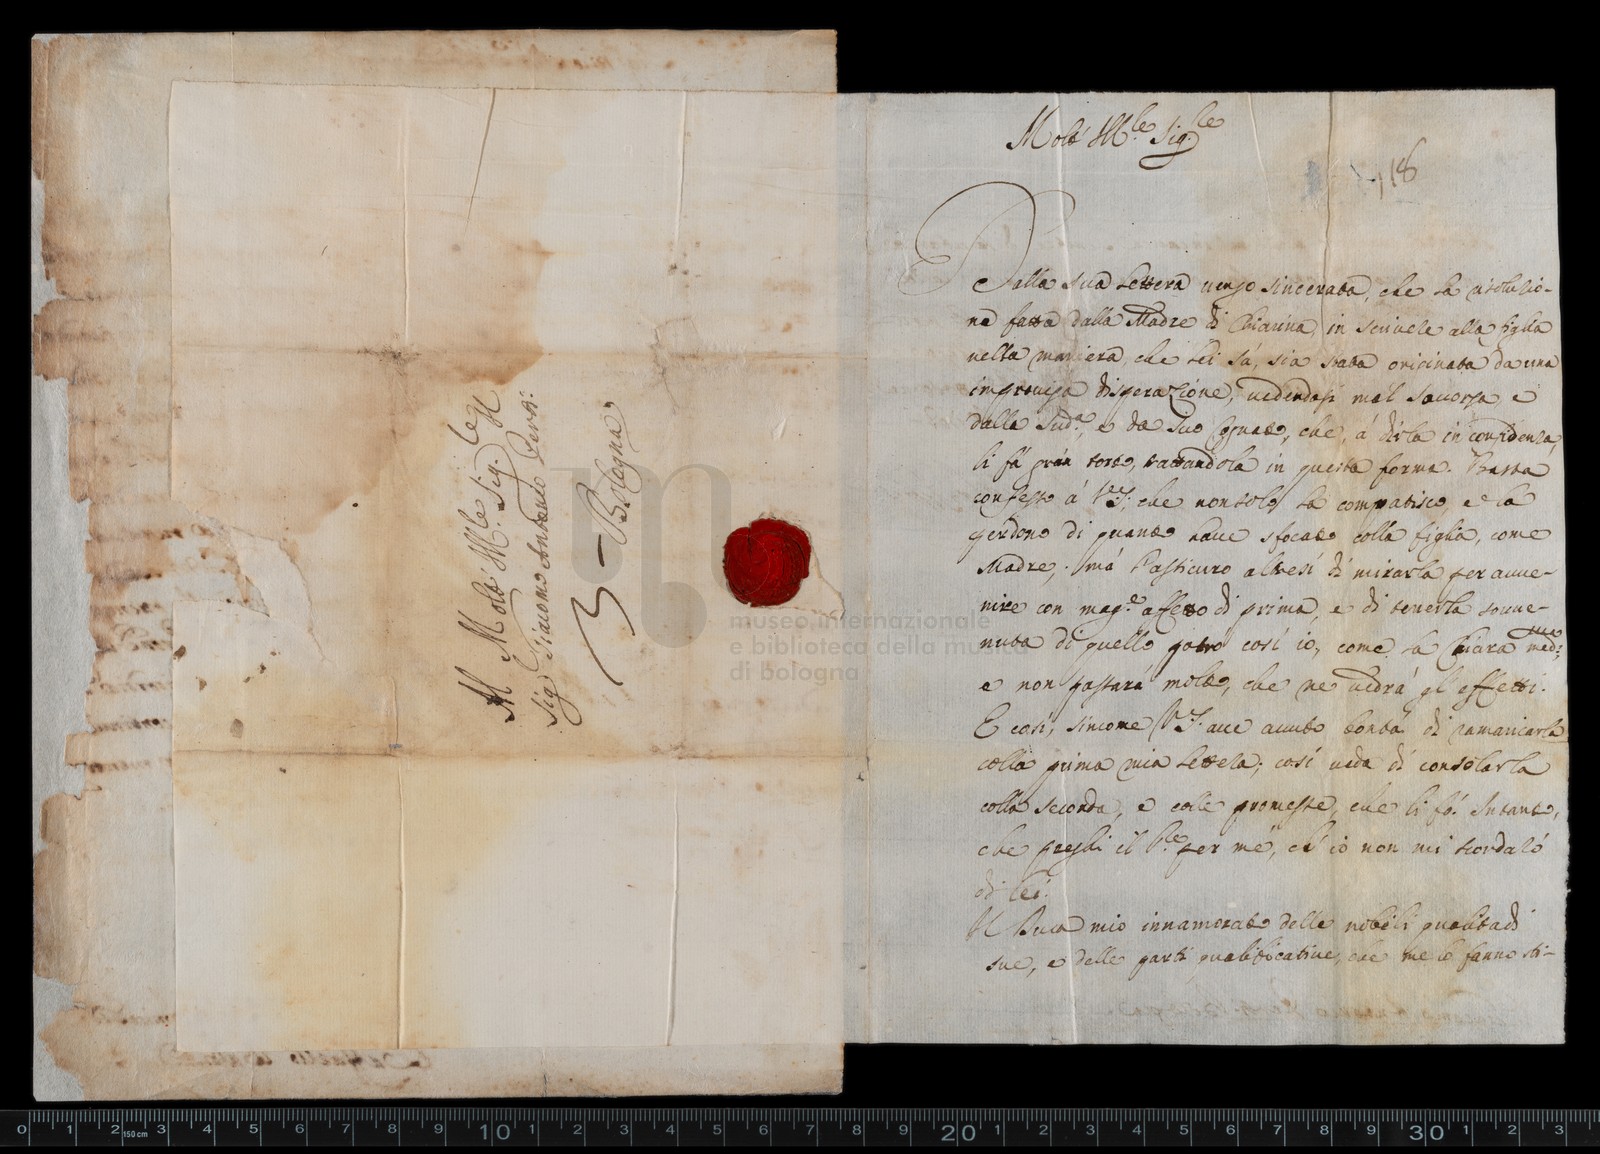 Al Molt' Ill.e Sig.re
Sig Giacomo Antonio Perti
Bologna
museo internazionale
e biblioteca della musica
di bologna
Molt' Ill.e Sig.re
118
Dalla sua Lettera vengo sincerata, che la risoluzio-
ne fatta dalla Madre di Chiarina in scrivere alla figlia
nella maniera, che Lei sá, sia stata originata da una
improvisa disperazione, vedendosi mal soccorsa, e
dalla Sud.a, e da suo Cognato, che, á dirla in confidenza,
li fá gran torto, trattandola in questa forma. Basta
confesso á V.S. che non solo la compatisco, e la
perdono di quanto have sfocato colla figlia, come
Madre, má l'assicuro altresí di mirarla per avve-
nire con mag.e affetto di prima, e di tenerla sovve-
nuta di quello potrò cosí io, come la Chiara med.ma,
e non passará molto, che ne vedrá gl'effetti.
E cosí, sincome V.S. ave avuto bontá di ramaricarla
colla prima mia Lettera; cosí veda di consolarla
colla seconda, e colle promesse, che li fó. Intanto,
che preghi il per mé, ch' io non mi scordaró
di lei.
Il Duca mio innamorato delle nobili qualitadi
sue, e delle parti qualificative, che me lo fanno sti-
0 1 2 3 4 5 6 7 8 9 10 1 2 3 4 5 6 7 8 9 20 1 2 3 4 5 6 7 8 9 30 1 2 3
150 cm